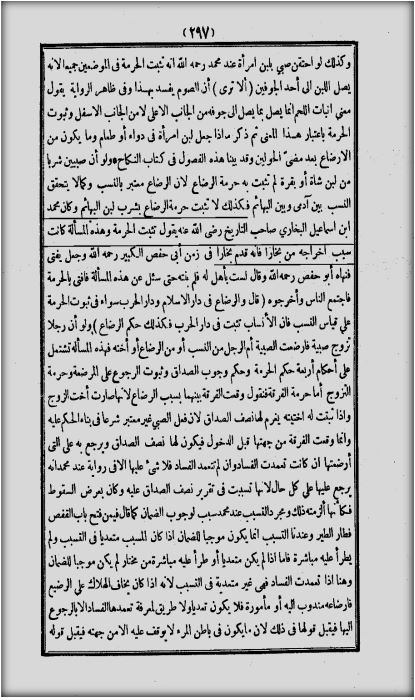 (٢٩٧)
وكذلك لو احتقن صبي بلبن امرأة عند محمد رحمه الله انه تثبت الحرمة في الموضعين جميعا لانه
يصل اللبن الى أحد الجوفين (ألا ترى) أن الصوم يفسد بهذا وفى ظاهر الرواية يقول
معنى انبات اللحم انما يصل بما يصل الى جوفه من الجانب الاعلى لا من الجانب الاسفل وثبوت
الحرمة باعتبار هذا المعنى ثم ذكر ماذا جعل لبن امرأة في دواء أو طعام وما يكون من
الارضاع بعد مضى الحولين وقد بينا هذه الفصول في كتاب النكاح ولو أن صبيين شربا
من لبن شاة أو بقرة لم تثبت به حرمة الرضاع لان الرضاع معتبر بالنسب وكما لا يتحقق
النسب بين آدمى وبين البهائم فكذلك لا تثبت حرمة الرضاع بشرب لبن البهائم وكان محمد
ابن اسماعيل البخاري صاحب التاريخ رضى الله عنه يقول تثبت الحرمة وهذه المسألة كانت
سبب اخراجه من بخارا فانه قدم بخارا في زمن أبى حفص الكبير رحمه الله وجعل يفتى
فنهاه أبو حفص رحمه الله وقال لست بأهل له فلم ينته حتى سئل عن هذه المسألة فافتى بالحرمة
فاجتمع الناس وأخرجوه (قال) والرضاع في دار الاسلام ودار الحرب سواء في ثبوت الحرمة
على قياس النسب فان الأنساب تثبت في دار الحرب فكذلك حكم الرضاع) ولو أن رجلا
تزوج صبية فارضعت الصبية أم الرجل من النسب أو من الرضاع أو أخته فهذه المسألة تشتمل
على أحكام أربعة حكم الحرمة وحكم وجوب الصداق وثبوت الرجوع على المرضعة وحرمة
التزوج أما حرمة الفرقة فنقول وقعت الفرقة بينهما بسبب الرضاع لانها صارت أخت الزوج
واذا ثبتت له اختيته يغرم لها نصف الصداق لان فعل الصبي غير معتبر شرعا في بناء الحكم عليه
وانما وقعت الفرقة من جهتها قبل الدخول فيكون لها نصف الصداق ويرجع به على التى
أرضعتها ان كانت تعمدت الفساد وان لم تتعمد الفساد فلا شئ عليها الا في رواية عند محمد انه
يرجع عليها على كل حال لانها تسببت في تقرير نصف الصداق عليه وكان بعرض السقوط
فكأنها ألزمته ذلك ومجرد التسبب عند محمد سبب لوجوب الضمان كما قال فيمن فتح باب القفص
فطار الطير وعندنا التسبب انما يكون موجبا للضمان اذا كان المسبب متعديا في التسبب ولم
يطرأ عليه مباشرة فاما اذا لم يكن متعديا أو طرأ عليه مباشرة من مختار لم يكن موجبا للضمان
وهنا اذا تعمدت الفساد فهى غير متعدية في التسبب لانه اذا كان يخاف الهلاك على الرضيع
فارضاعه مندوب اليه أو مأمورة فلا يكون تعديا ولا طريق لمعرفة تعمدها الفساد الا بالرجوع
اليها فيقبل قولها في ذلك لان ما يكون في باطن المرء لا يوقف عليه الا من جهته فيقبل قوله